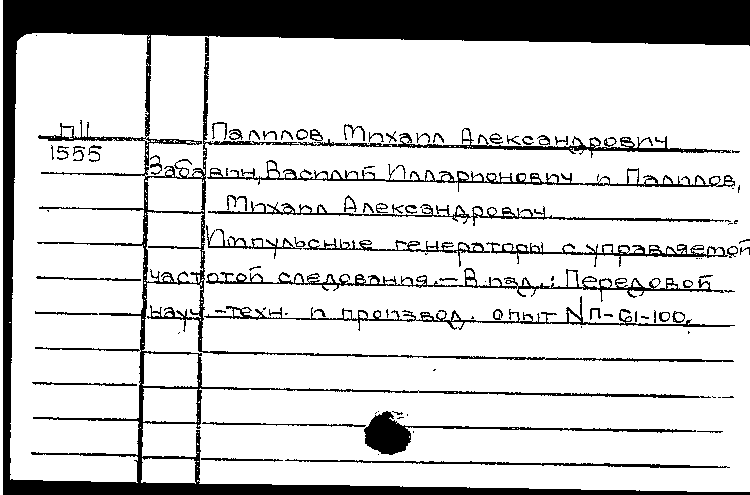 П11 Палилов, Михаил Александрович
1555
Забавин, Василий Илларионович и Палилов,
Михаил Александрович.
Импульсные генераторы с управляемой
частотой следования. — В изд.: Передовой
науч.-техн. и производ. опыт №П-61-100,